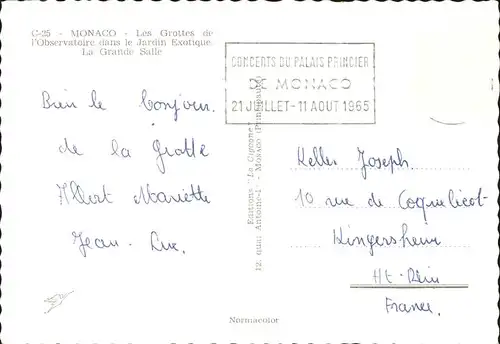 C-35 - MONACO - Les Grottes de
l'Observatoire dans le Jardin Exotique.
La Grande Salle
CONCERTS DU PALAIS PRINCIER
DE MONACO
21 JUILLET - 11 AOUT 1965
Bien le bonjour
de la Grotte
Albert Mariette
Jean-Luc.
Editions "La Cigogne"
12, quai Antoine-Ier - Monaco (Principauté)
Keller Joseph
10 rue de Coquelicot
Kingersheim
Ht-Rhin
France.
Normacolor